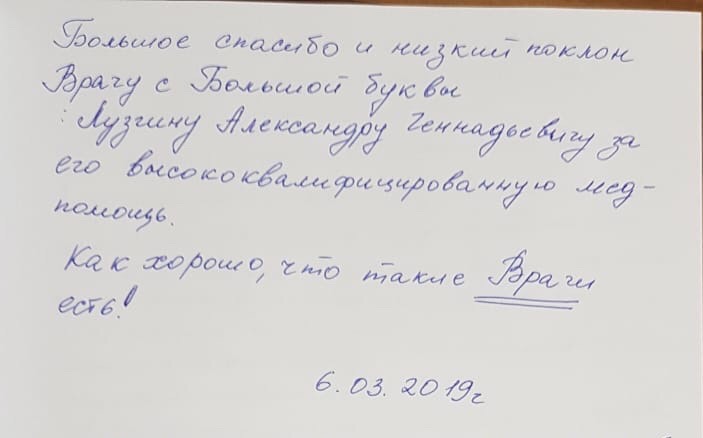 Большое спасибо и низкий поклон
Врачу с Большой буквы
: Лузгину Александру Геннадьевичу за
его высококвалифицированную мед-
помощь.
Как хорошо, что такие Врачи
есть!
6.03.2019г